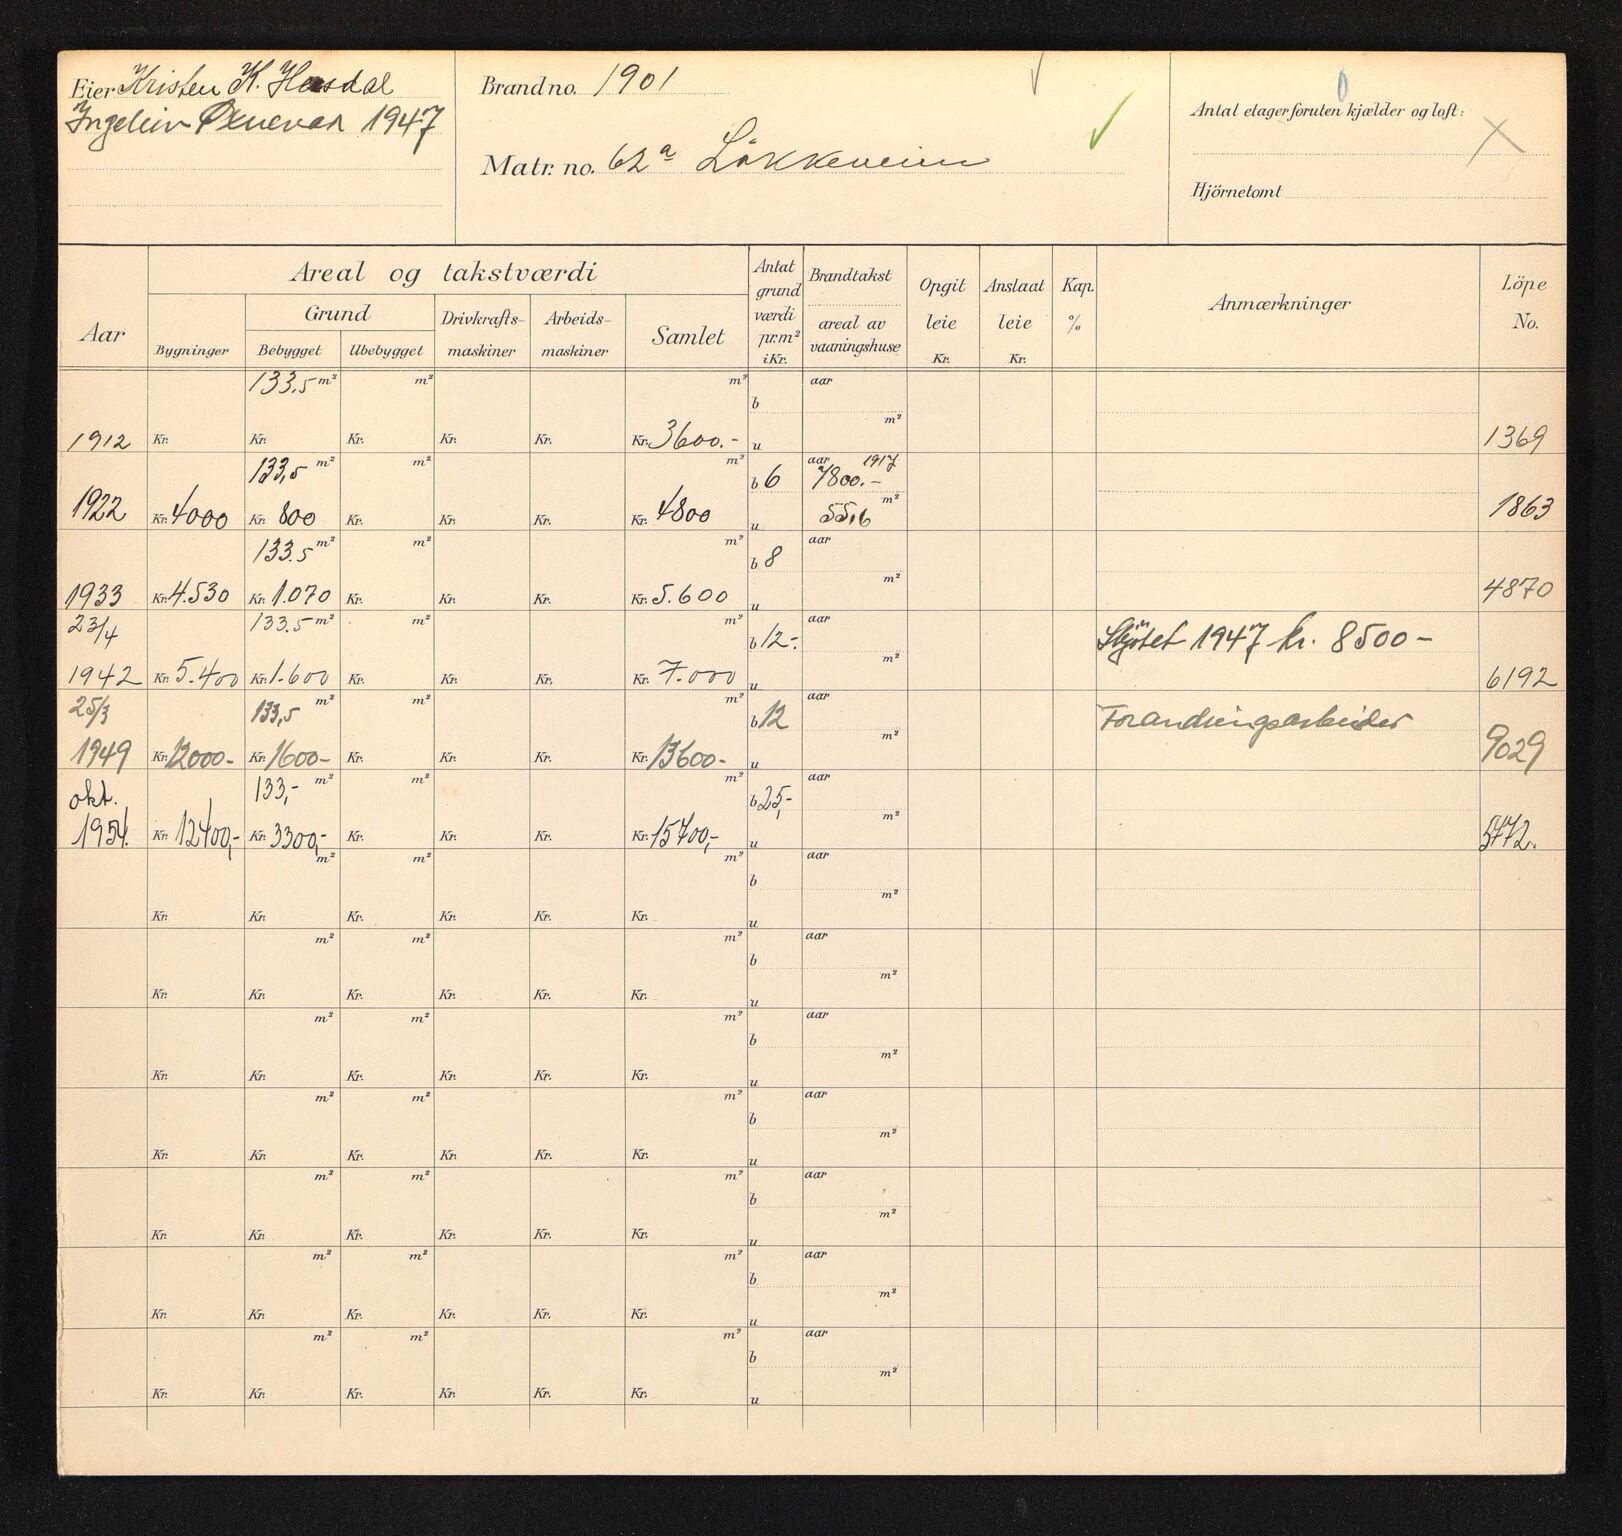 Eier Kristen K. Hesdal
Ingolein Øxnevar 1947
Brandno. 1901
Matr. no. 62a Løkkeveien
Antal etager foruten kjælder og loft:
Hjörnetomt
Aar
Areal og takstværdi
Bygninger
Grund
Bebygget
Ubebygget
Drivkrafts-
maskiner
Arbeids-
maskiner
Samlet
Antat
grund
værdi
pr.m²
i Kr.
Brandtakst
areal av
vaaningshuse
Opgit
leie
Kr.
Anslaat
leie
Kr.
Kap.
%
Anmærkninger
Löpe
No.
133.5 m² m² m² b aar
m²
1912 Kr. Kr. Kr. Kr. Kr. Kr. 3600.- u 1369
133,5 m² m² m² b 6 aar 1917
7800.-
m²
1922 Kr. 4000 Kr. 800 Kr. Kr. Kr. Kr. 4800 u 55,6 1863
133.5 m² m² m² b 8 aar
m²
1933 Kr. 4.530 Kr. 1.070 Kr. Kr. Kr. Kr. 5.600 u 4870
23/4 133.5 m² m² m² b 12-. aar Skjøtet 1947 kr. 8500-
m²
1942 Kr. 5.400 Kr. 1.600 Kr. Kr. Kr. Kr. 7.000 u 6192
25/3 133,5 m² m² m² b 12 aar Forandringsarbeider
m²
1949 Kr. 12000- Kr. 1600- Kr. Kr. Kr. Kr. 13600- u 9029
okt. 133,- m² m² m² b 25,- aar
m²
1954. Kr. 12400,- Kr. 3300,- Kr. Kr. Kr. Kr. 15700,- u 5772.
m² m² m² b aar
m²
Kr. Kr. Kr. Kr. Kr. Kr. u
m² m² m² b aar
m²
Kr. Kr. Kr. Kr. Kr. Kr. u
m² m² m² b aar
m²
Kr. Kr. Kr. Kr. Kr. Kr. u
m² m² m² b aar
m²
Kr. Kr. Kr. Kr. Kr. Kr. u
m² m² m² b aar
m²
Kr. Kr. Kr. Kr. Kr. Kr. u
m² m² m² b aar
m²
Kr. Kr. Kr. Kr. Kr. Kr. u
m² m² m² b aar
m²
Kr. Kr. Kr. Kr. Kr. Kr. u